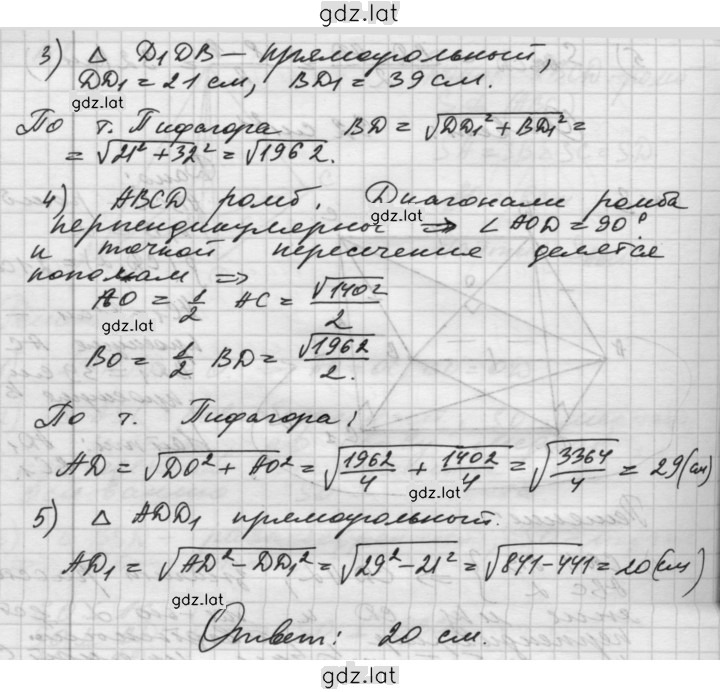 gdz.lat
3) △ D₁DB — прямоугольный,
DD₁ = 21 см, BD₁ = 39 см.
gdz.lat
По т. Пифагора BD = √(DD₁² + BD₁²) =
= √(21² + 32²) = √1962.
4) ABCD ромб. Диагонали ромба
gdz.lat
перпендикулярны ⇒ ∠AOD = 90°
и точкой пересечение делятся
пополам ⇒
AO = 1/2 AC = √1402/2
gdz.lat
BO = 1/2 BD = √1962/2.
По т. Пифагора:
AD = √(DO² + AO²) = √(1962/4 + 1402/4) = √(3364/4) = 29 (см)
gdz.lat
5) △ ADD₁ прямоугольный.
AD₁ = √(AD² − DD₁²) = √(29² − 21²) = √(841 − 441) = 20 (см)
gdz.lat
Ответ: 20 см.
gdz.lat